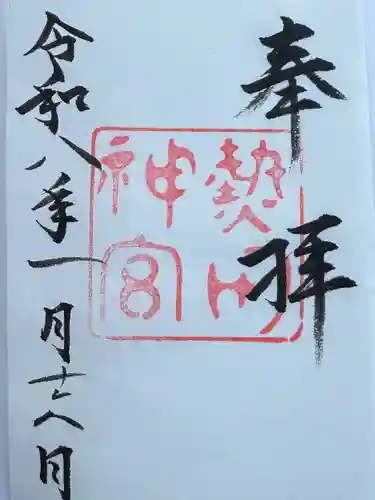 奉拝
熱田神宮
令和八年一月十八日